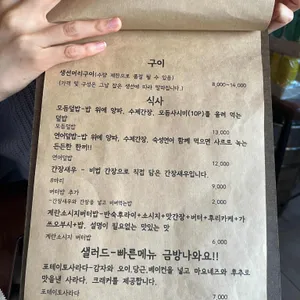 구이
생선머리구이(수량 제한으로 품절 될 수 있음)
(가격 및 구성은 그날 잡은 생선에 따라 달라집니다.)
8,000~14,000
식사
모둠덮밥-밥 위에 양파, 수제간장, 모둠사시미(10P)를 올려 먹는
덮밥
모둠덮밥
13,000
연어덮밥-밥 위에 양파, 수제간장, 숙성연어 함께 먹으면 사르르 녹는
든든한 한끼!!
연어덮밥
12,000
간장새우 - 비법 간장으로 직접 담은 간장새우입니다.
8마리
9,000
버터밥 추가
-간장새우와 간장을 넣고 비벼먹는밥
2,000
계란소시지버터밥-반숙후라이+소시지+맛간장+버터+후리가케+가
쯔오부시+밥, 설명이 필요없는 맛있는 맛!
계란소시지 버터밥
6,000
샐러드-빠른메뉴 금방나와요!!
포테이토사라다-감자와 오이,당근,베이컨을 넣고 마요네즈와 후추로
맛을낸 사라다. 크래커를 제공합니다.
포테이토사라다
7,000